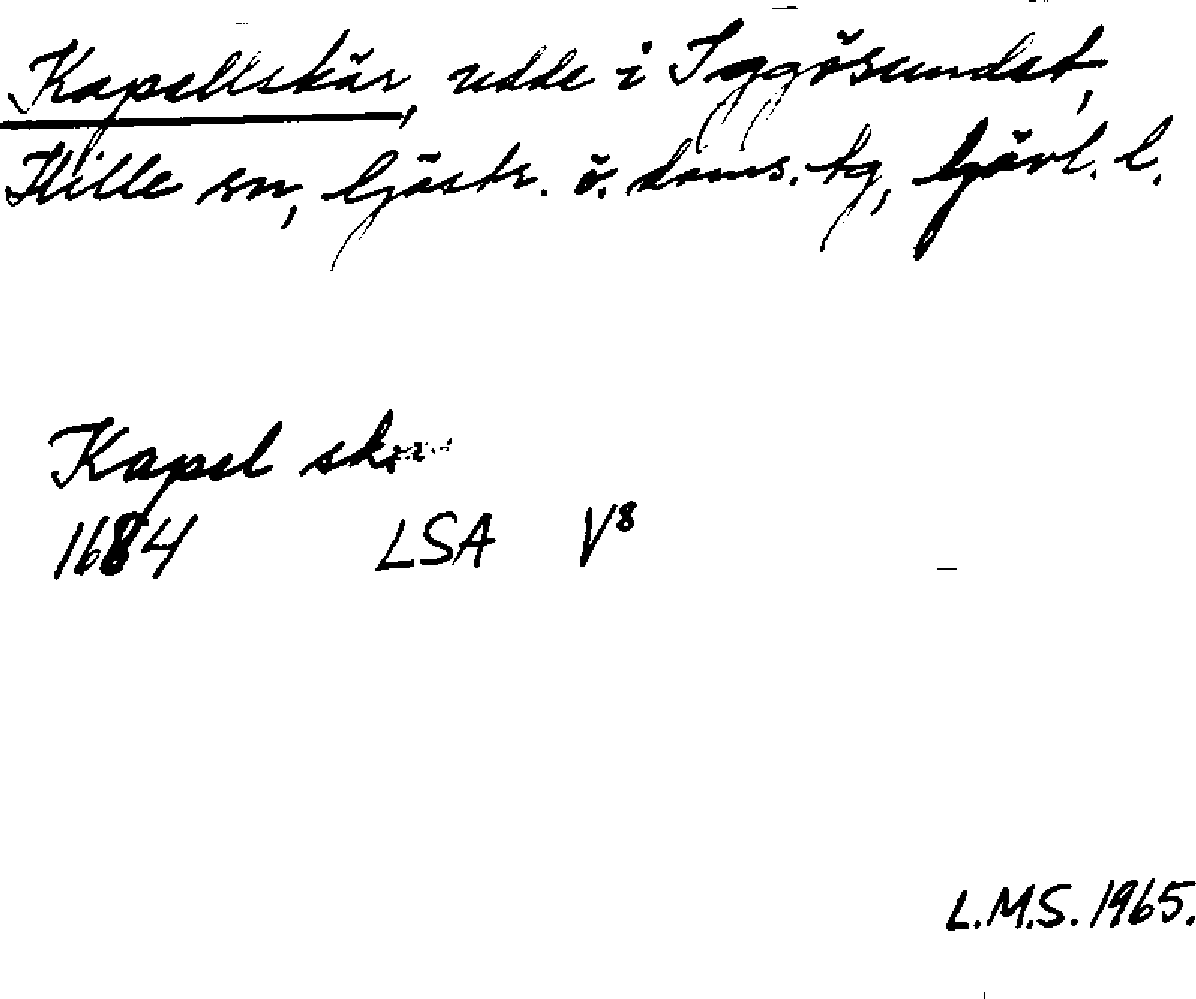 Kapellskär, udde i Iggösundet,
Hille sn, Gästr. ö. doms. tg, Gävl. l.
Kapel
1684 LSA V8
L.M.S. 1965.